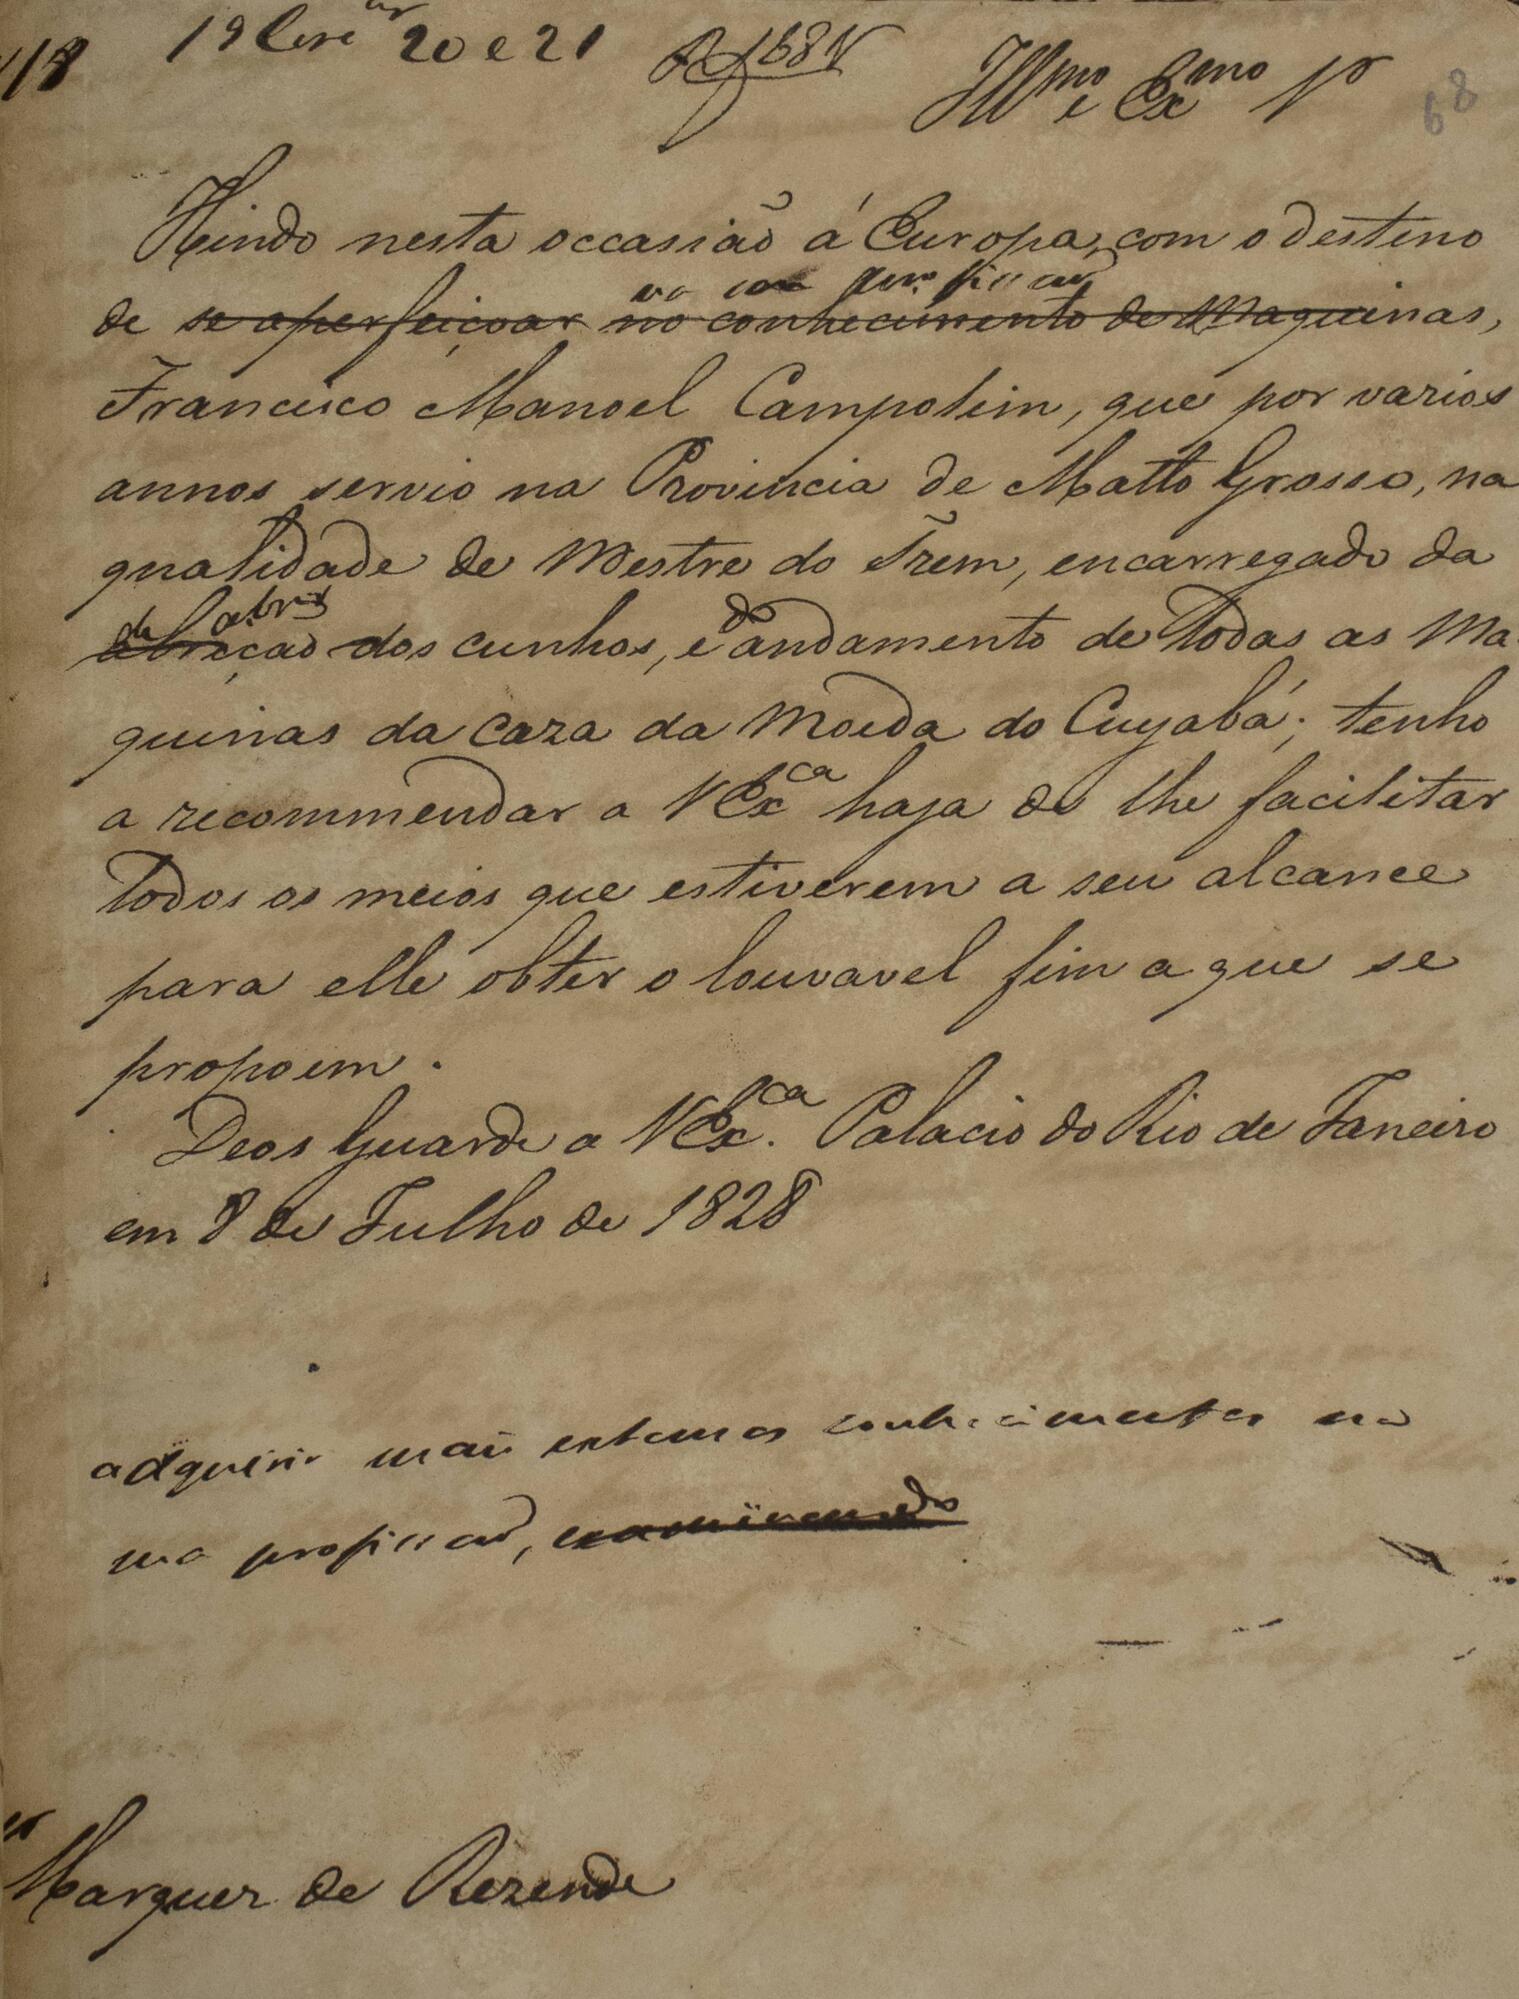 19 20 e 21
Illmo e Exmo Sr
68
Hindo nesta occasião á Europa, com o destino
na sua profissaõ
de se aperfeiçoar no conhecimento de Maquinas,
Francisco Manoel Campolim, que por varios
annos servio na Provincia de Matto Grosso, na
qualidade de Mestre do Trem, encarregado da
de abrir do
abreçao dos cunhos, e andamento de todas as Ma
quinas da Caza da Moeda do Cuyabá; tenho
a recommendar a VExca haja de lhe facilitar
todos os meios que estiverem a seu alcance
para elle obter o louvavel fim a que se
propoem.
Deos Guarde a VExca. Palacio do Rio de Janeiro
em 8 de Julho de 1828
adquirir mais extensos conhecimentos na
sua profissaõ, examinando
Marquez de Rezende